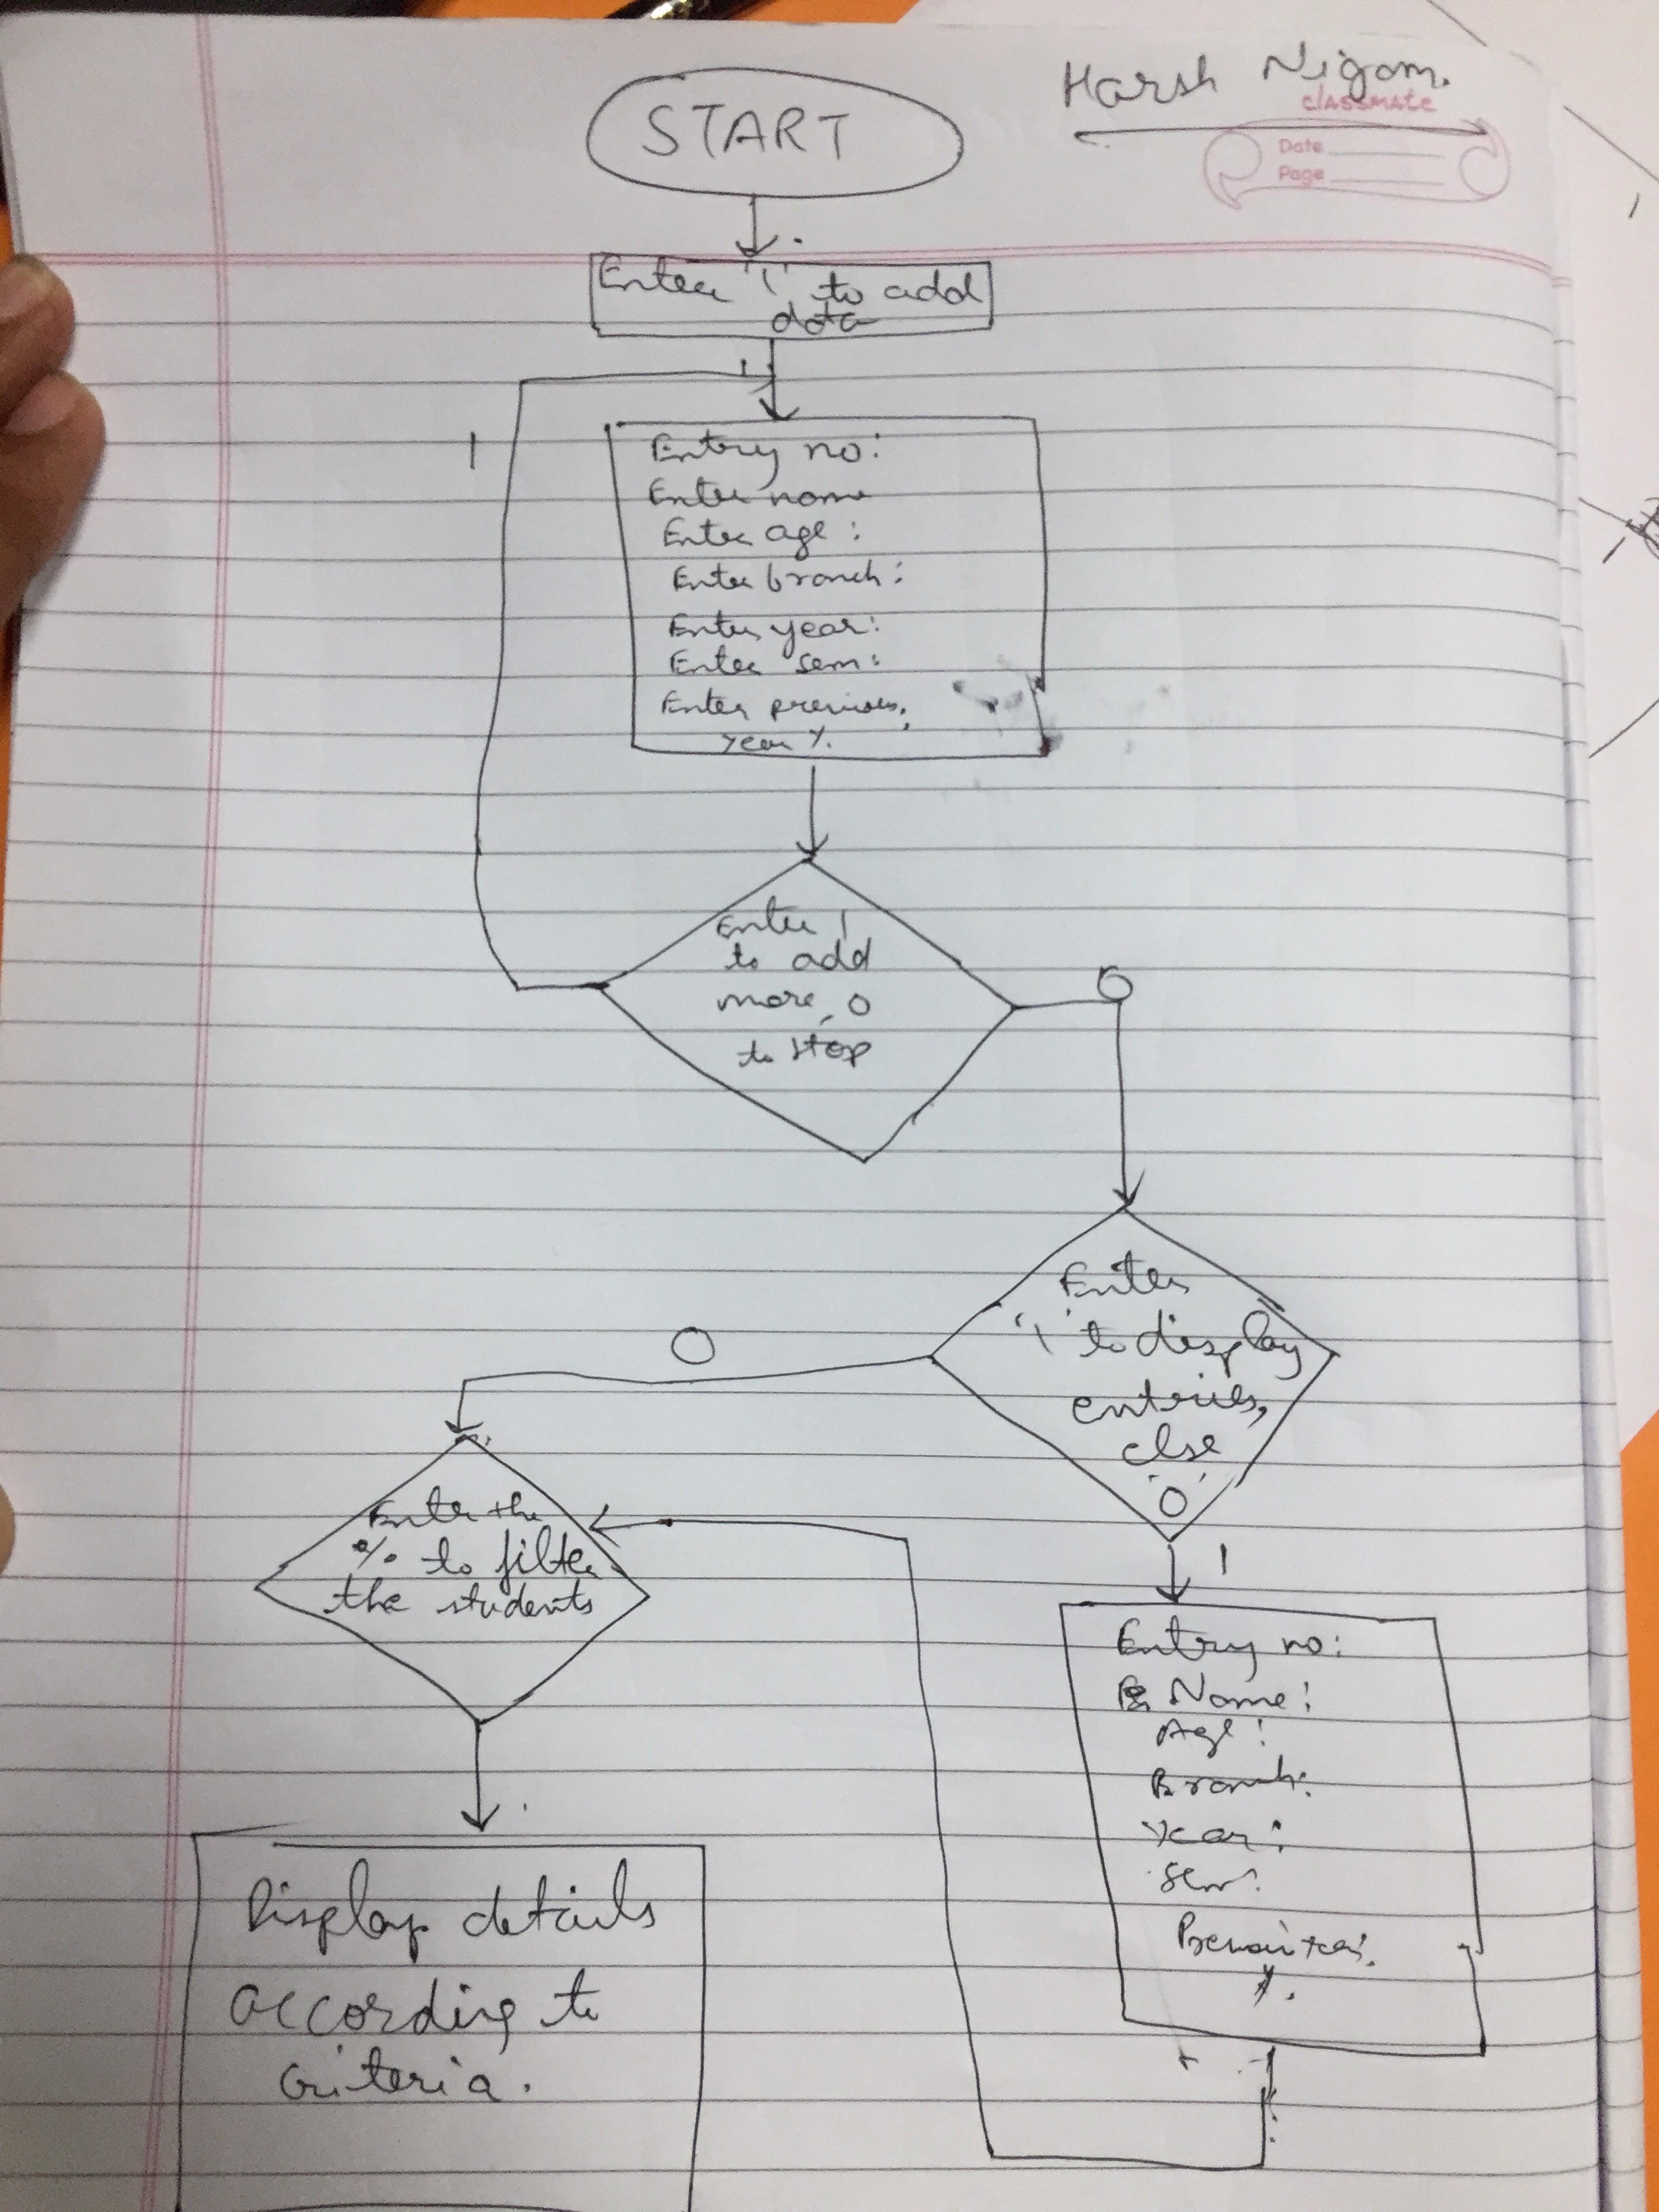 Harsh Nigam.
classmate
Date
Page
START
Enter '1' to add
data
Entry no:
Enter name
Enter age :
Enter branch:
Enter year:
Enter sem:
Enter previous
year %.
1
Enter 1
to add
more, 0
to stop
0
Enter
'1' to display
entries,
else
'0'
0
1
Enter the
% to filter
the students
Entry no:
Name:
Age:
Branch:
Year:
Sem:
%.
Display details
according to
criteria.